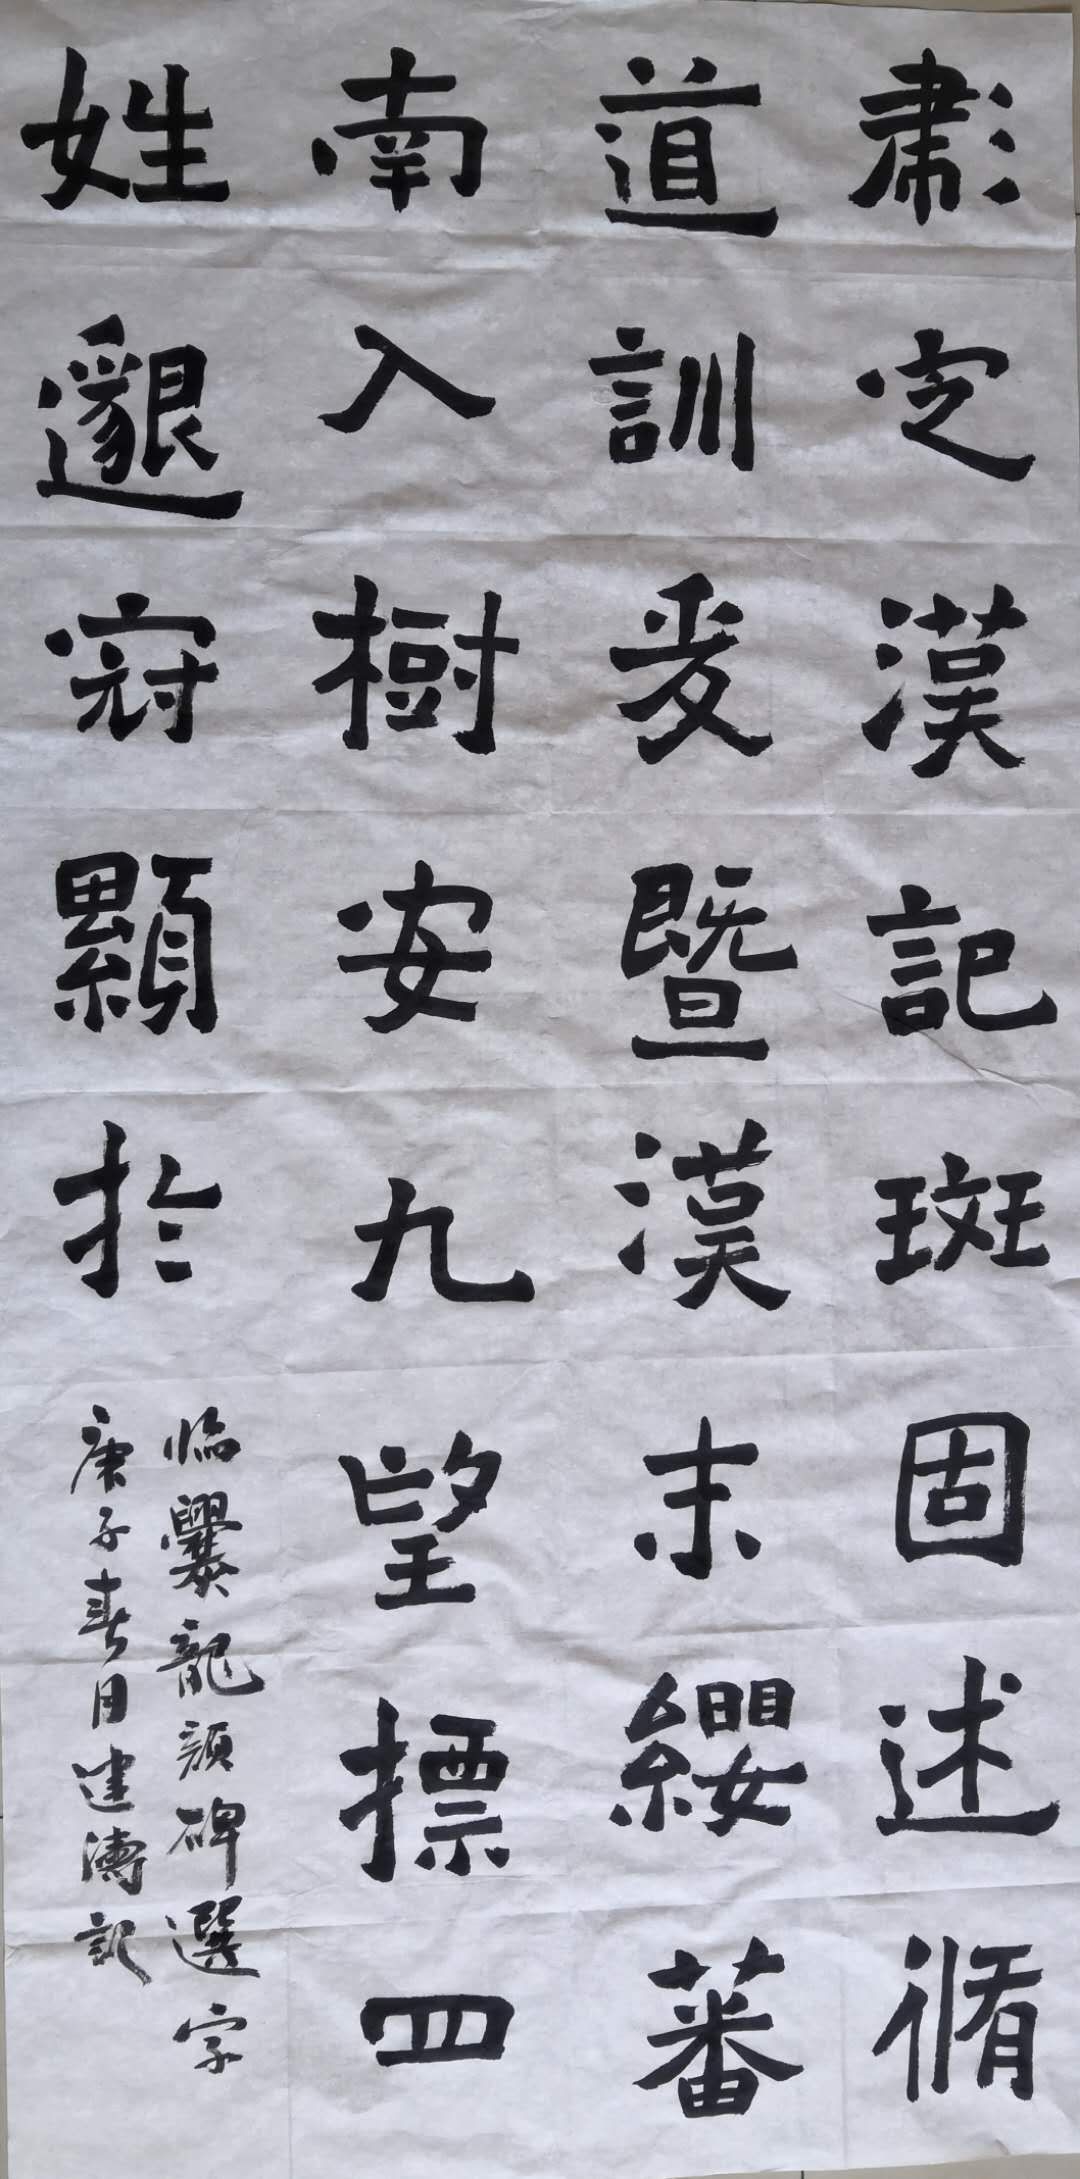 肅定漢記斑固述脩
道訓爰暨漢末纓蕃
南入樹安九望摽四
姓邈冠顯於
临爨龍顔碑選字
庚子春月建濤記